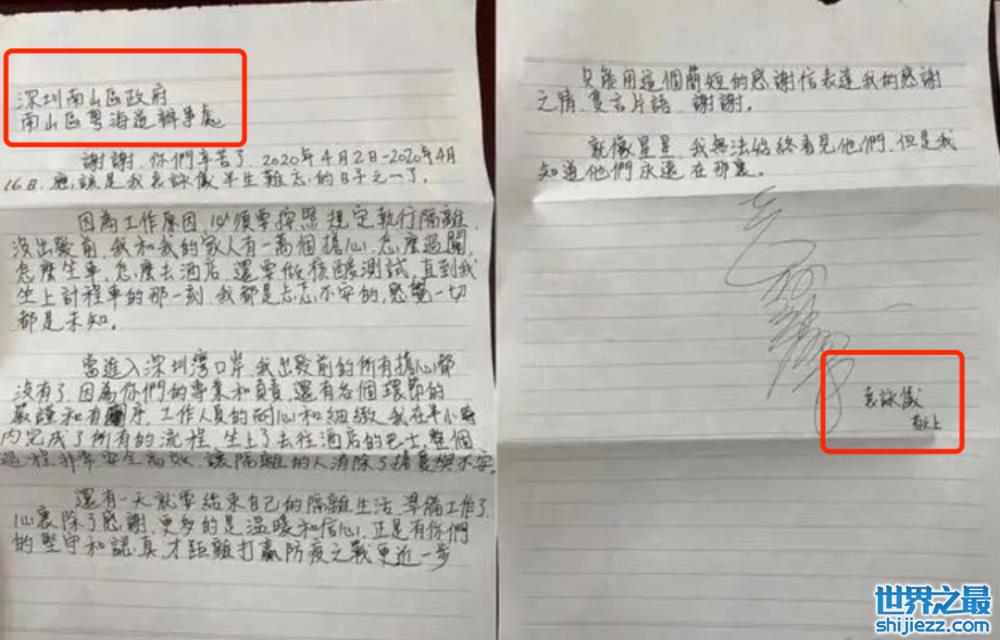 深圳南山區政府
南山區粵海道辦事處
謝謝,你們辛苦了,2020年4月2日-2020年4月
16日,應該是我袁詠儀半生難忘的日子元一了.
因為工作原因,必須要按照規定執行隔離,
沒出發前,我和我的家人有一萬個擔心,怎麼過關,
怎麼坐車,怎麼去酒店,還要做核酸測試,直到我
坐上計程車的那一刻,我都是忐忑不安的,感覺一切
都是未知。
當進入深圳灣口岸,我出發前的所有擔心都
沒有了,因為你們的專業和負責,還有各個環節的
嚴謹和有序,工作人員的耐心和細緻,我在半小時
內完成了所有的流程,坐上了去往酒店的巴士,整個
過程非常安全高效,讓隔離的人消除了擔憂與不安.
還有一天就要結束自己的隔離生活,準備工作了,
心裏除了感謝,更多的是溫暖和信心,正是有你們
的堅守和認真,才距離打贏防疫之戰更近一步
只能用這個簡短的感謝信表達我的感謝
之情,隻言片語,謝謝。
就像星星,我無法始終看見他們,但是我
知道他們永遠在那裏。
袁詠儀
敬上
世界之最
shijiezz.com